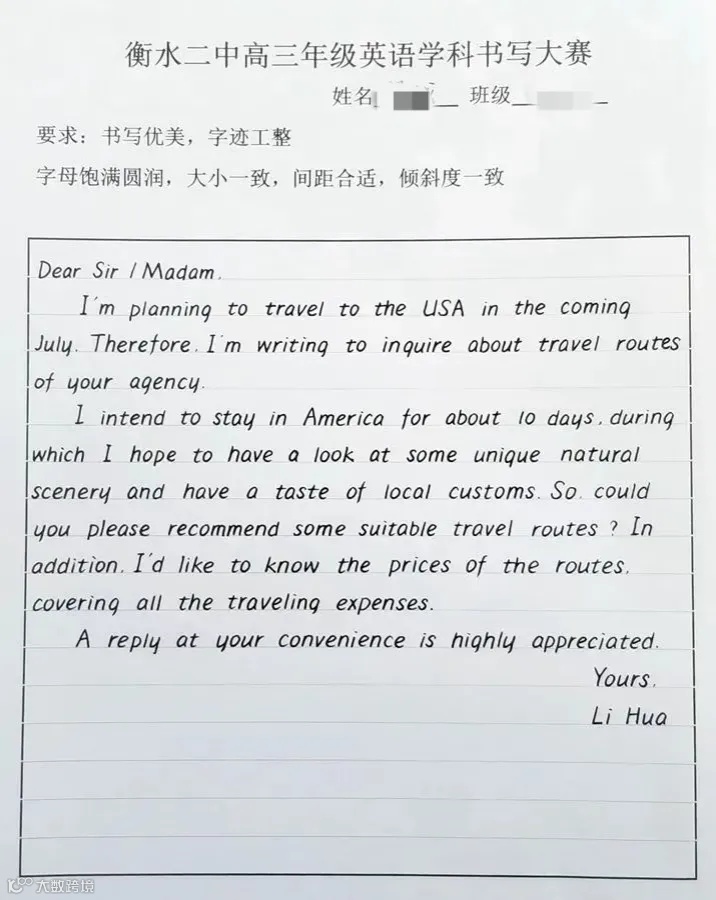 衡水二中高三年级英语学科书写大赛
姓名 班级
要求：书写优美，字迹工整
字母饱满圆润，大小一致，间距合适，倾斜度一致
Dear Sir / Madam,
I'm planning to travel to the USA in the coming
July. Therefore, I'm writing to inquire about travel routes
of your agency.
I intend to stay in America for about 10 days, during
which I hope to have a look at some unique natural
scenery and have a taste of local customs. So, could
you please recommend some suitable travel routes ? In
addition, I'd like to know the prices of the routes,
covering all the traveling expenses.
A reply at your convenience is highly appreciated.
Yours,
Li Hua
大数跨境